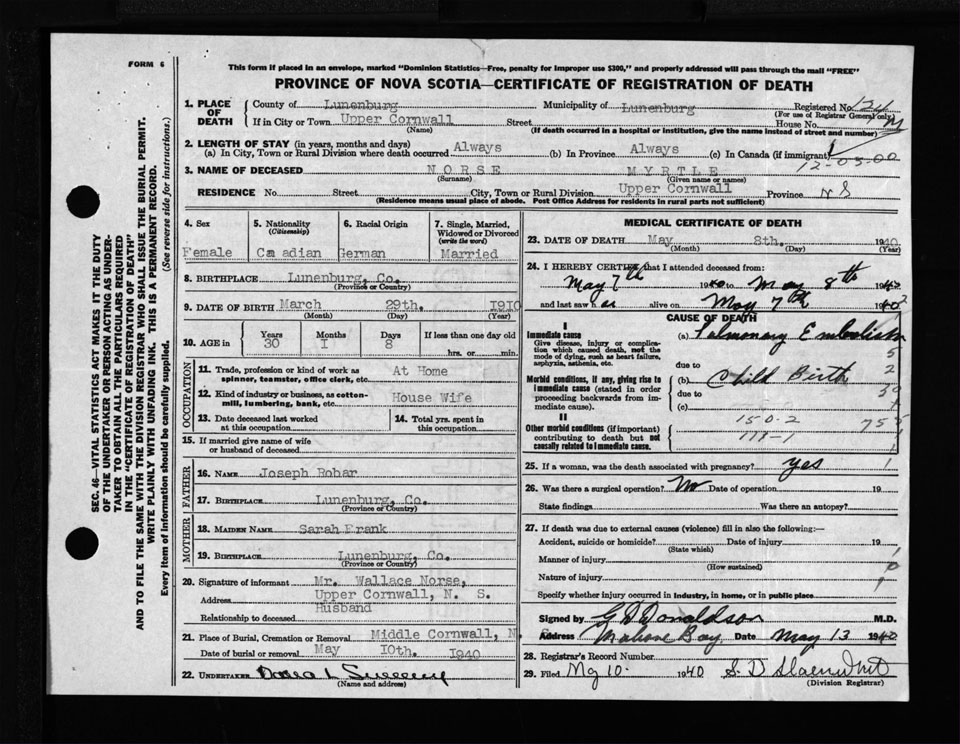 FORM 6
This form if placed in an envelope, marked "Dominion Statistics—Free, penalty for improper use $300," and properly addressed will pass through the mail "FREE"
PROVINCE OF NOVA SCOTIA—CERTIFICATE OF REGISTRATION OF DEATH
1. PLACE OF DEATH
County of Lunenburg Municipality of Lunenburg Registered No.
(For use of Registrar General only)
If in City or Town Upper Cornwall Street House No.
(Name) (If death occurred in a hospital or institution, give the name instead of street and number)
2. LENGTH OF STAY (in years, months and days)
(a) In City, Town or Rural Division where death occurred Always (b) In Province Always (c) In Canada (if immigrant)
12-03-00
3. NAME OF DECEASED NORSE MYRTLE
(Surname) (Given name or names)
RESIDENCE No. Street City, Town or Rural Division Upper Cornwall Province N S
(Residence means usual place of abode. Post Office Address for residents in rural parts not sufficient)
4. Sex
Female
5. Nationality
(Citizenship)
Canadian
6. Racial Origin
German
7. Single, Married, Widowed or Divorced
(write the word)
Married
8. BIRTHPLACE Lunenburg, Co.
(Province or Country)
9. DATE OF BIRTH March 29th. 1910
(Month) (Day) (Year)
10. AGE in Years Months Days If less than one day old
30 I 8 hrs. or min.
OCCUPATION
11. Trade, profession or kind of work as spinner, teamster, office clerk, etc. At Home
12. Kind of industry or business, as cotton-mill, lumbering, bank, etc. House Wife
13. Date deceased last worked at this occupation
14. Total yrs. spent in this occupation
15. If married give name of wife or husband of deceased
FATHER
16. NAME Joseph Robar
17. BIRTHPLACE Lunenburg, Co.
(Province or Country)
MOTHER
18. MAIDEN NAME Sarah Frank
19. BIRTHPLACE Lunenburg, Co.
(Province or Country)
20. Signature of informant Mr. Wallace Norse,
Address Upper Cornwall, N. S.
Relationship to deceased Husband
21. Place of Burial, Cremation or Removal Middle Cornwall, N.
Date of burial or removal May 10th. 1940
22. UNDERTAKER
(Name and Address)
MEDICAL CERTIFICATE OF DEATH
23. DATE OF DEATH May 8th. 1940
(Month) (Day) (Year)
24. I HEREBY CERTIFY that I attended deceased from:
May 7th 1940 to May 8th 1940
and last saw h er alive on May 7th 1940
CAUSE OF DEATH
I
Immediate cause
Give disease, injury or complication which caused death, not the mode of dying, such as heart failure, asphyxia, asthenia, etc.
(a) Pulmonary Embolism
due to
Morbid conditions, if any, giving rise to immediate cause (stated in order proceeding backwards from immediate cause).
(b) Child Birth
due to
(c)
II
Other morbid conditions (important) contributing to death but not causally related to immediate cause.
150-2
25. If a woman, was the death associated with pregnancy? yes
26. Was there a surgical operation? No Date of operation 19
State findings Was there an autopsy?
27. If death was due to external causes (violence) fill in also the following:—
Accident, suicide or homicide? Date of injury 19
(State which)
Manner of injury
(How sustained)
Nature of injury
Specify whether injury occurred in industry, in home, or in public place
Signed by G D Donaldson M.D.
Address Mahone Bay Date May 13 1940
28. Registrar's Record Number
29. Filed My 10 1940
(Division Registrar)
SEC. 46—VITAL STATISTICS ACT MAKES IT THE DUTY
OF THE UNDERTAKER OR PERSON ACTING AS UNDER-
TAKER TO OBTAIN ALL THE PARTICULARS REQUIRED
IN THE "CERTIFICATE OF REGISTRATION OF DEATH"
AND TO FILE THE SAME WITH THE DIVISION REGISTRAR WHO SHALL ISSUE THE BURIAL PERMIT.
WRITE PLAINLY WITH UNFADING INK. THIS IS A PERMANENT RECORD.
Every item of information should be carefully supplied. (See reverse side for instructions.)